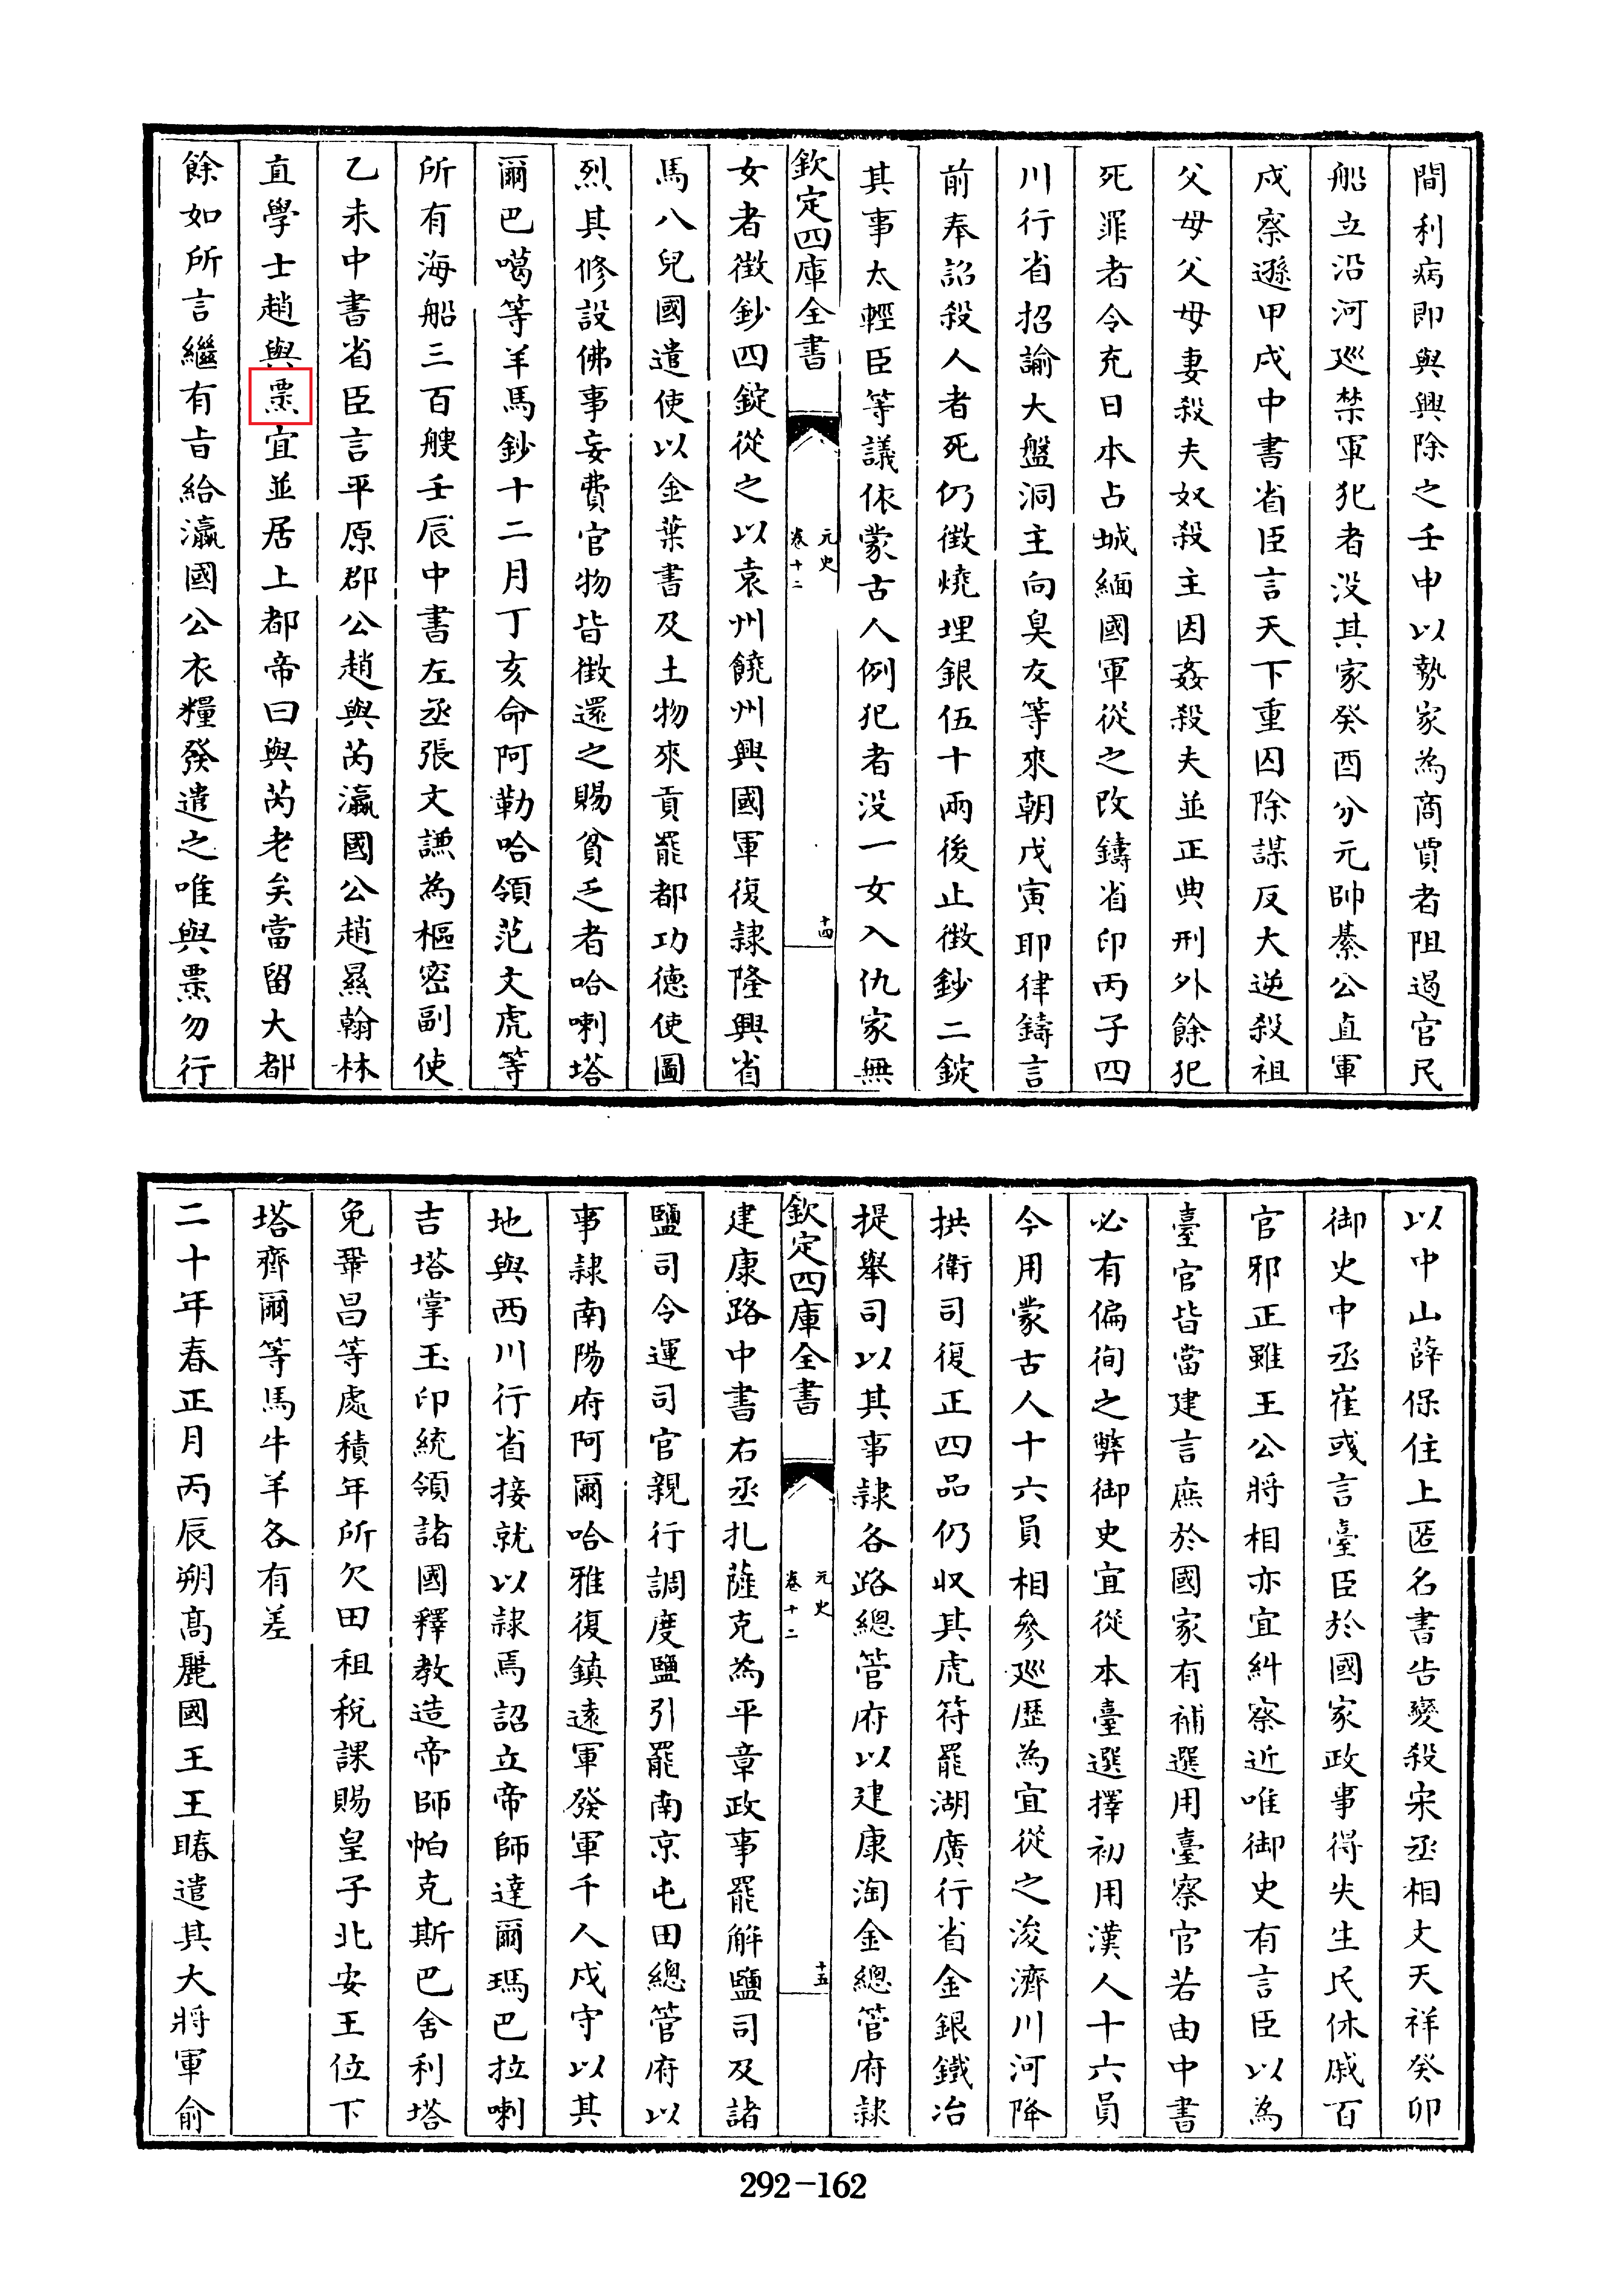 間利病即與興除之壬申以勢家為商賈者阻遏官民
船立沿河廵禁軍犯者没其家癸酉分元帥綦公直軍
戍察遜甲戌中書省臣言天下重囚除謀反大逆殺祖
父母父母妻殺夫奴殺主因姦殺夫並正典刑外餘犯
死罪者令充日本占城緬國軍從之改鑄省印丙子四
川行省招諭大盤洞主向臭友等來朝戊寅耶律鑄言
前奉詔殺人者死仍徴燒埋銀伍十兩後止徴鈔二錠
其事太輕臣等議依蒙古人例犯者没一女入仇家無
欽定四庫全書
元史
卷十二
十四
女者徴鈔四錠從之以袁州饒州興國軍復隷隆興省
馬八兒國遣使以金葉書及土物來貢罷都功德使圖
烈其修設佛事妄費官物皆徴還之賜貧乏者哈喇塔
爾巴噶等羊馬鈔十二月丁亥命阿勒哈領范文虎等
所有海船三百艘壬辰中書左丞張文謙為樞密副使
乙未中書省臣言平原郡公趙與芮瀛國公趙㬎翰林
直學士趙與票宜並居上都帝曰與芮老矣當留大都
餘如所言繼有旨給瀛國公衣糧發遣之唯與票勿行
以中山薛保住上匿名書告變殺宋丞相文天祥癸卯
御史中丞崔彧言臺臣於國家政事得失生民休戚百
官邪正雖王公將相亦宜糾察近唯御史有言臣以為
臺官皆當建言庶於國家有補選用臺察官若由中書
必有偏徇之弊御史宜從本臺選擇初用漢人十六員
今用蒙古人十六員相參廵歴為宜從之浚濟川河降
拱衛司復正四品仍収其虎符罷湖廣行省金銀鐵冶
提舉司以其事隷各路總管府以建康淘金總管府隷
欽定四庫全書
元史
卷十二
十五
建康路中書右丞扎薩克為平章政事罷解鹽司及諸
鹽司令運司官親行調度鹽引罷南京屯田總管府以
事隷南陽府阿爾哈雅復鎮遠軍發軍千人戍守以其
地與西川行省接就以隷焉詔立帝師達爾瑪巴拉喇
吉塔掌玉印統領諸國釋教造帝師帕克斯巴舍利塔
免鞏昌等處積年所欠田租稅課賜皇子北安王位下
塔齊爾等馬牛羊各有差
二十年春正月丙辰朔高麗國王王睶遣其大將軍俞
292-162